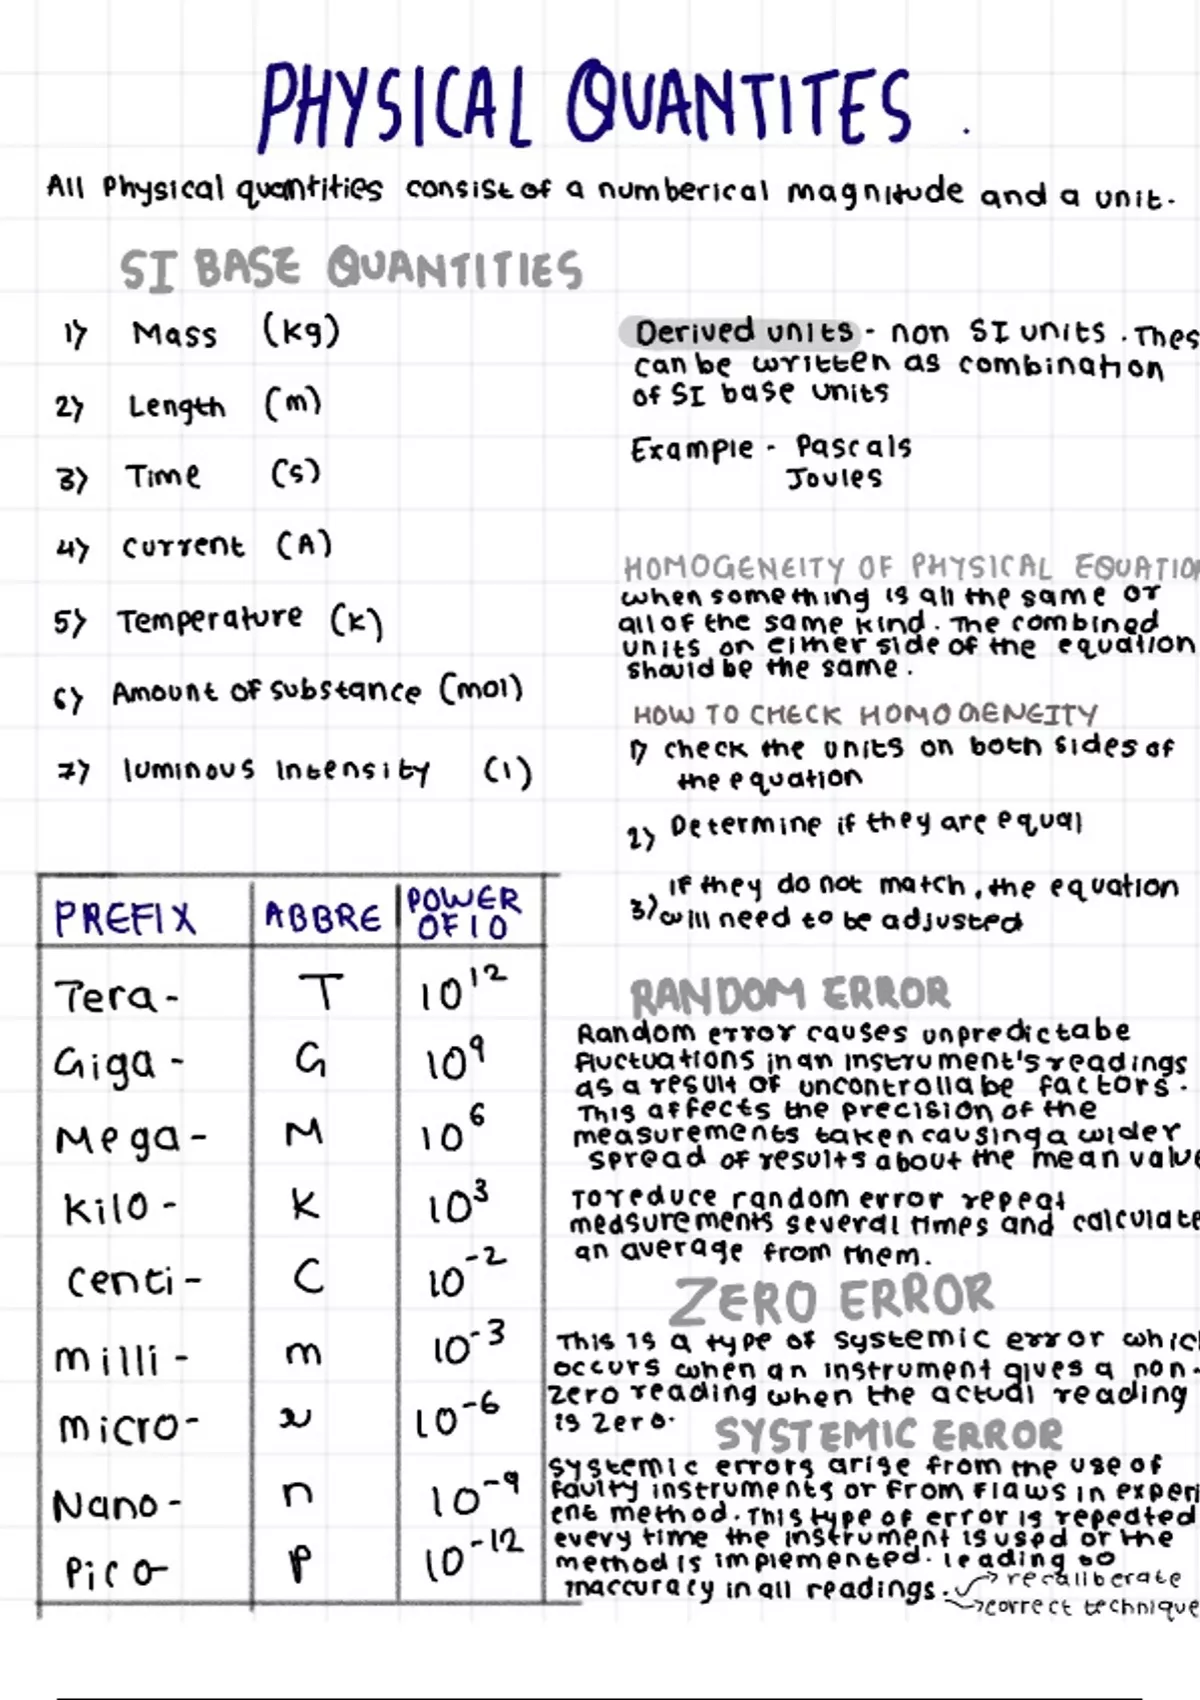 PHYSICAL QUANTITES.
All Physical quantities consist of a numberical magnitude and a unit.
SI BASE QUANTITIES
1) Mass (kg)
2) Length (m)
3) Time (s)
4) Current (A)
5) Temperature (K)
6) Amount of substance (mol)
7) luminous intensity (1)
Derived units - non SI units. Thes
can be written as combination
of SI base units
Example - Pascals
Joules
HOMOGENEITY OF PHYSICAL EQUATION
when something is all the same or
all of the same kind. The combined
units on either side of the equation
should be the same.
HOW TO CHECK HOMOGENEITY
1) check the units on both sides of
the equation
2) Determine if they are equal
3) if they do not match, the equation
will need to be adjusted
PREFIX ABBRE POWER OF 10
Tera - T 10¹²
Giga - G 10⁹
Mega - M 10⁶
Kilo - K 10³
Centi - C 10⁻²
milli - m 10⁻³
micro - 10⁻⁶
Nano - n 10⁻⁹
Pico - p 10⁻¹²
RANDOM ERROR
Random error causes unpredictabe
fluctuations in an instrument's readings
as a result of uncontrollabe factors.
This affects the precision of the
measurements taken causing a wider
spread of results about the mean value
To reduce random error repeat
measurements several times and calculate
an average from them.
ZERO ERROR
This is a type of systemic error which
occurs when an instrument gives a non-
zero reading when the actual reading
is zero.
SYSTEMIC ERROR
systemic errors arise from the use of
faulty instruments or from flaws in experi
ent method. This type of error is repeated
every time the instrument is used or the
method is implemented. leading to
inaccuracy in all readings. → recaliberate
→ correct technique